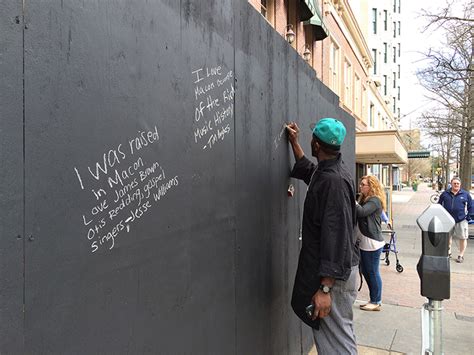 I was raised
in Macon
Love James Brown,
Otis Redding, gospel
singers - Jesse Williams
I love
Macon because
of the Rich
Music History